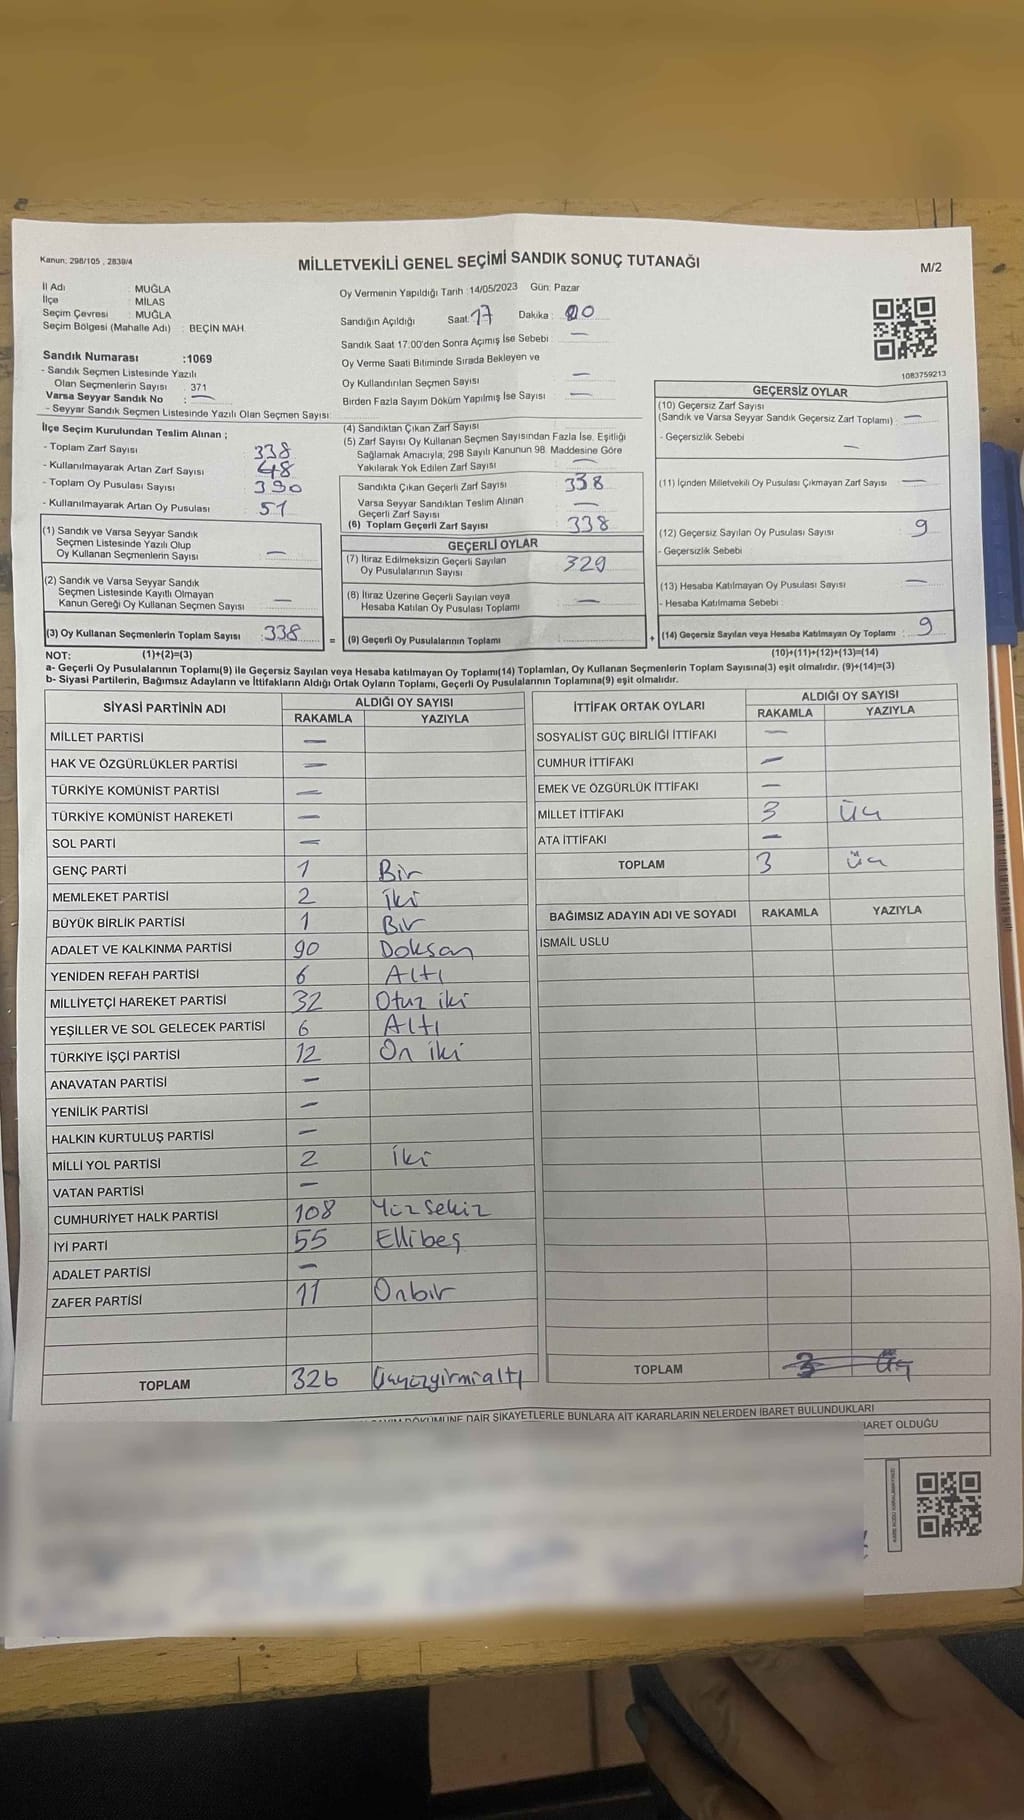 Kanun: 298/105 , 2839/4
MİLLETVEKİLİ GENEL SEÇİMİ SANDIK SONUÇ TUTANAĞI
M/2
İl Adı : MUĞLA
İlçe : MİLAS
Seçim Çevresi : MUĞLA
Seçim Bölgesi (Mahalle Adı) : BEÇİN MAH.
Sandık Numarası :1069
- Sandık Seçmen Listesinde Yazılı
Olan Seçmenlerin Sayısı : 371
Varsa Seyyar Sandık No : —
- Seyyar Sandık Seçmen Listesinde Yazılı Olan Seçmen Sayısı:
Oy Vermenin Yapıldığı Tarih :14/05/2023 Gün: Pazar
Sandığın Açıldığı Saat: 17 Dakika : 00
Sandık Saat 17:00'den Sonra Açımış İse Sebebi —
Oy Verme Saati Bitiminde Sırada Bekleyen ve
Oy Kullandırılan Seçmen Sayısı —
Birden Fazla Sayım Döküm Yapılmış İse Sayısı —
1083759213
İlçe Seçim Kurulundan Teslim Alınan ;
- Toplam Zarf Sayısı 338
- Kullanılmayarak Artan Zarf Sayısı 48
- Toplam Oy Pusulası Sayısı 390
- Kullanılmayarak Artan Oy Pusulası 51
(1) Sandık ve Varsa Seyyar Sandık
Seçmen Listesinde Yazılı Olup
Oy Kullanan Seçmenlerin Sayısı —
(2) Sandık ve Varsa Seyyar Sandık
Seçmen Listesinde Kayıtlı Olmayan
Kanun Gereği Oy Kullanan Seçmen Sayısı —
(3) Oy Kullanan Seçmenlerin Toplam Sayısı :338
(4) Sandıktan Çıkan Zarf Sayısı
(5) Zarf Sayısı Oy Kullanan Seçmen Sayısından Fazla İse, Eşitliği
Sağlamak Amacıyla; 298 Sayılı Kanunun 98. Maddesine Göre
Yakılarak Yok Edilen Zarf Sayısı —
Sandıkta Çıkan Geçerli Zarf Sayısı 338
Varsa Seyyar Sandıktan Teslim Alınan
Geçerli Zarf Sayısı —
(6) Toplam Geçerli Zarf Sayısı 338
GEÇERLİ OYLAR
(7) İtiraz Edilmeksizin Geçerli Sayılan
Oy Pusulalarının Sayısı 329
(8) İtiraz Üzerine Geçerli Sayılan veya
Hesaba Katılan Oy Pusulası Toplamı —
= (9) Geçerli Oy Pusulalarının Toplamı
GEÇERSİZ OYLAR
(10) Geçersiz Zarf Sayısı
(Sandık ve Varsa Seyyar Sandık Geçersiz Zarf Toplamı) : —
- Geçersizlik Sebebi —
(11) İçinden Milletvekili Oy Pusulası Çıkmayan Zarf Sayısı —
(12) Geçersiz Sayılan Oy Pusulası Sayısı 9
- Geçersizlik Sebebi
(13) Hesaba Katılmayan Oy Pusulası Sayısı —
- Hesaba Katılmama Sebebi :
+ (14) Geçersiz Sayılan veya Hesaba Katılmayan Oy Toplamı : 9
NOT: (1)+(2)=(3) (10)+(11)+(12)+(13)=(14)
a- Geçerli Oy Pusulalarının Toplamı(9) ile Geçersiz Sayılan veya Hesaba katılmayan Oy Toplamı(14) Toplamları, Oy Kullanan Seçmenlerin Toplam Sayısına(3) eşit olmalıdır. (9)+(14)=(3)
b- Siyasi Partilerin, Bağımsız Adayların ve İttifakların Aldığı Ortak Oyların Toplamı, Geçerli Oy Pusulalarının Toplamına(9) eşit olmalıdır.
SİYASİ PARTİNİN ADI ALDIĞI OY SAYISI
RAKAMLA YAZIYLA
MİLLET PARTİSİ —
HAK VE ÖZGÜRLÜKLER PARTİSİ —
TÜRKİYE KOMÜNİST PARTİSİ —
TÜRKİYE KOMÜNİST HAREKETİ —
SOL PARTİ —
GENÇ PARTİ 1 Bir
MEMLEKET PARTİSİ 2 iki
BÜYÜK BİRLİK PARTİSİ 1 Bir
ADALET VE KALKINMA PARTİSİ 90 Doksan
YENİDEN REFAH PARTİSİ 6 Altı
MİLLİYETÇİ HAREKET PARTİSİ 32 Otuz iki
YEŞİLLER VE SOL GELECEK PARTİSİ 6 Altı
TÜRKİYE İŞÇİ PARTİSİ 12 On iki
ANAVATAN PARTİSİ —
YENİLİK PARTİSİ —
HALKIN KURTULUŞ PARTİSİ —
MİLLİ YOL PARTİSİ 2 iki
VATAN PARTİSİ —
CUMHURİYET HALK PARTİSİ 108 Yüz Sekiz
İYİ PARTİ 55 Ellibeş
ADALET PARTİSİ —
ZAFER PARTİSİ 11 Onbir
TOPLAM 326 Üçyüzyirmialtı
İTTİFAK ORTAK OYLARI ALDIĞI OY SAYISI
RAKAMLA YAZIYLA
SOSYALİST GÜÇ BİRLİĞİ İTTİFAKI —
CUMHUR İTTİFAKI —
EMEK VE ÖZGÜRLÜK İTTİFAKI —
MİLLET İTTİFAKI 3 Üç
ATA İTTİFAKI —
TOPLAM 3 üç
BAĞIMSIZ ADAYIN ADI VE SOYADI RAKAMLA YAZIYLA
İSMAİL USLU
TOPLAM 3 Üç
DÖKÜMÜNE DAİR ŞİKAYETLERLE BUNLARA AİT KARARLARIN NELERDEN İBARET BULUNDUKLARI
İBARET OLDUĞU